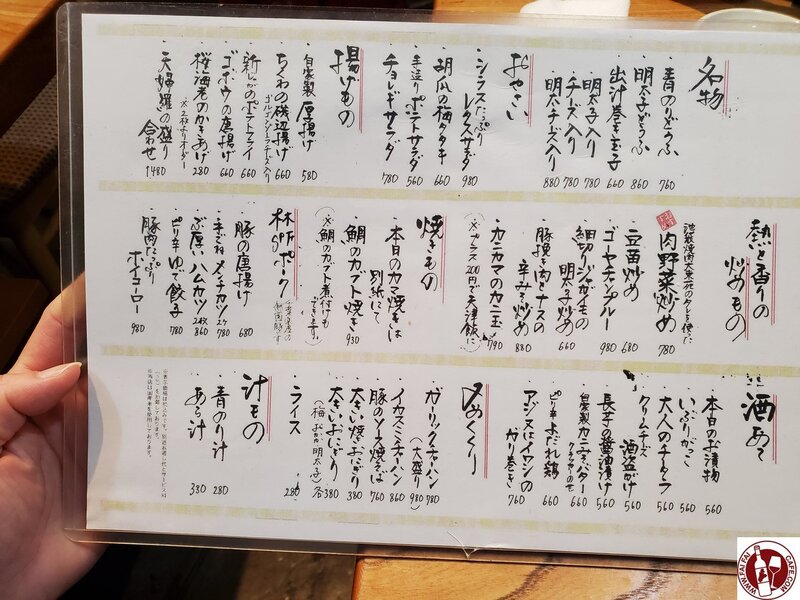 名物
・青のりどうふ 760
・明太子どうふ 860
・出汁巻き玉子 660
・明太子入り 780
・チーズ入り 780
・明太チーズ入り 880
おやさい
・シラスたっぷりレタスサラダ 980
・胡瓜の梅タタキ 660
・手造りポテトサラダ 560
・チョレギサラダ 780
揚げもの
・自家製厚揚げ 580
・ちくわの磯辺揚げ 660
・ゴボウの唐揚げ 660
・桜海老のかきあげ 280
※2枚よりオーダー
・天婦羅の盛り合わせ 1480
熱いと香りの炒めもの
肉野菜炒め 780
・豆苗炒め 680
・ゴーヤチャンプルー 980
・細切りジャガイモの明太子炒め 660
・豚挽き肉とナスの辛みそ炒め 880
・カニカマのカニ玉 790
(※プラス200円で天津飯に)
焼きもの
・本日のカマ焼きは別紙にて
・鯛のカブト焼き 930
(※鯛のカブト煮付けもできます。)
林SPFポーク
・豚の唐揚げ 680
・手ごねメンチカツ 2ケ 780
・ぶ厚いハムカツ 2枚 860
・ピリ辛ゆで餃子 780
・豚肉たっぷりホイコーロー 980
酒あて
・本日のお漬物 560
・いぶりがっこ 560
・大人のチータラ 560
・クリームチーズ酒盗がけ 560
・長芋の醤油漬け 560
・自家製カニみそバター 660
・ピリ辛よだれ鶏 660
・アジ又はイワシのガリ巻き 760
〆めくくり
・ガーリックチャーハン 780
(大盛り 980)
・イカスミチャーハン 860
・豚のソース焼そば 760
・大きい焼おにぎり 380
・大きいおにぎり 各380
(梅 おかか 明太子)
・ライス 280
汁もの
・青のり汁 280
・あら汁 330
WWW.FAI-FAI CAFE.COM